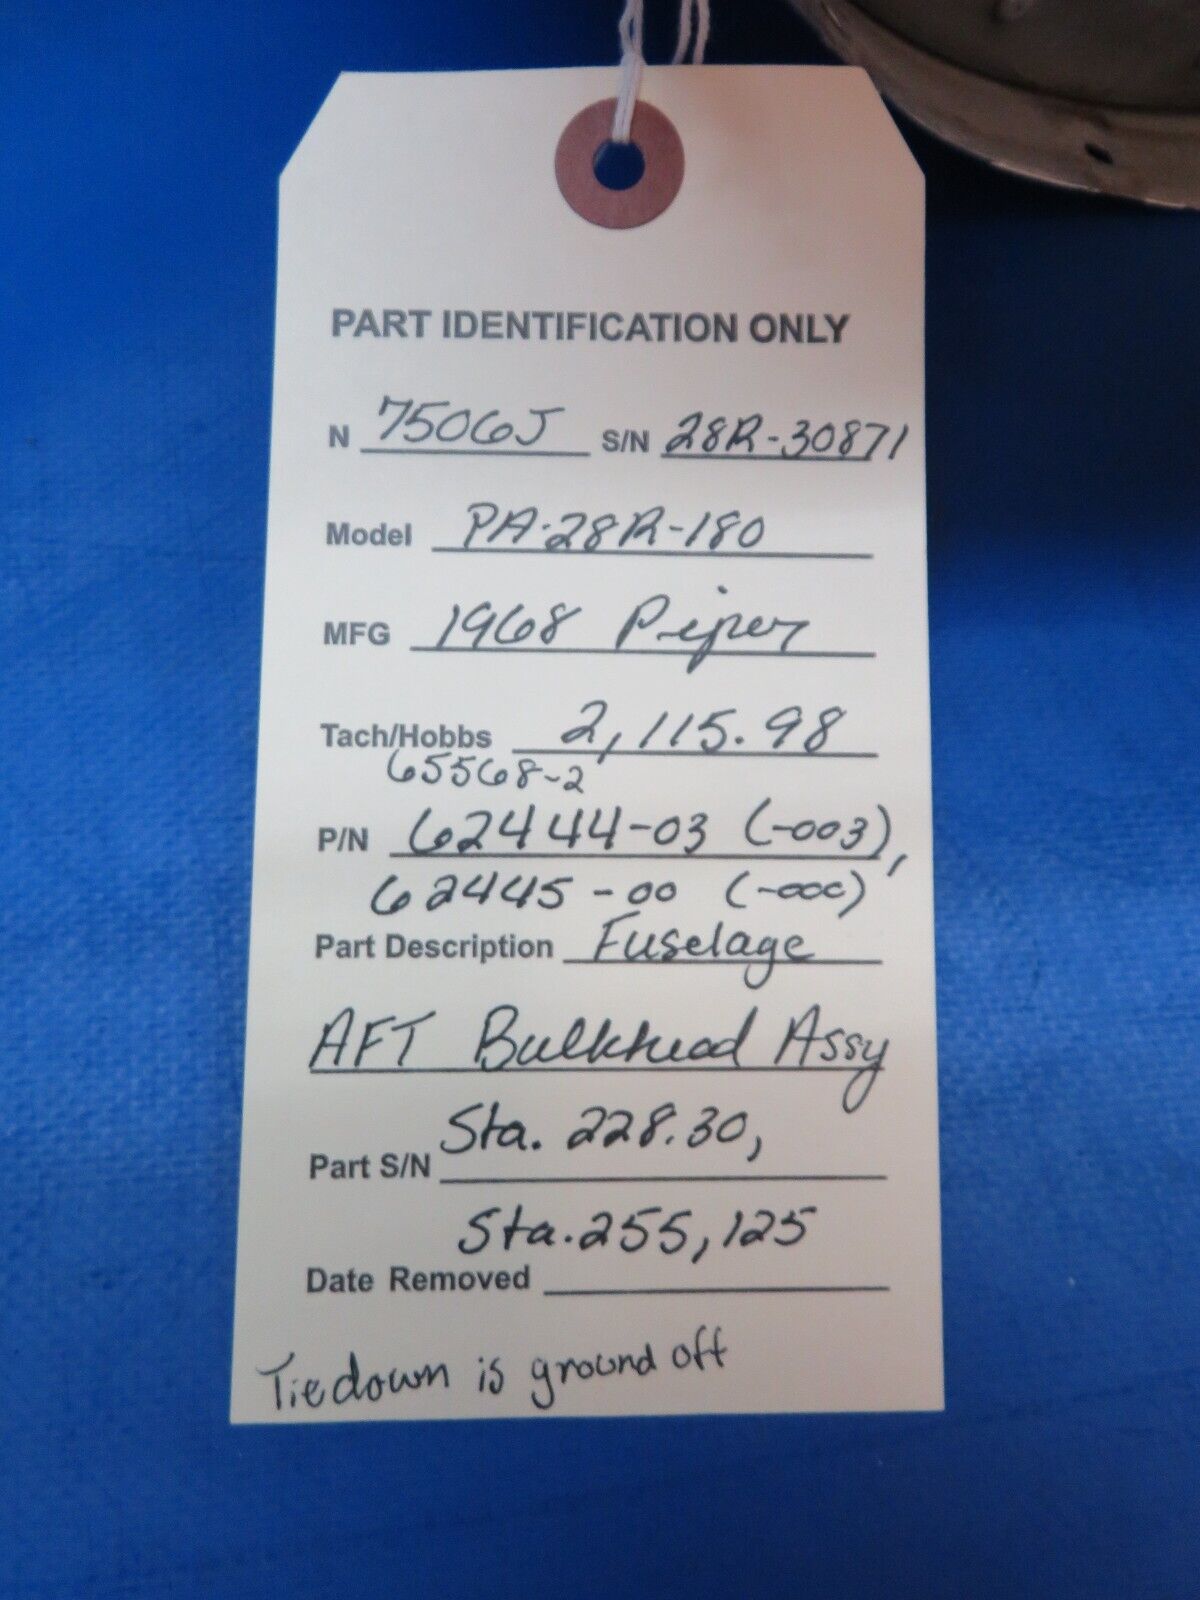 PART IDENTIFICATION ONLY
N 7506J S/N 28R-30871
Model PA-28R-180
MFG 1968 Piper
Tach/Hobbs 2,115.98
65568-2
P/N 62444-03 (-003),
62445-00 (-000)
Part Description Fuselage
AFT Bulkhead Assy
Part S/N Sta. 228.30,
Sta. 255,125
Date Removed
Tiedown is ground off